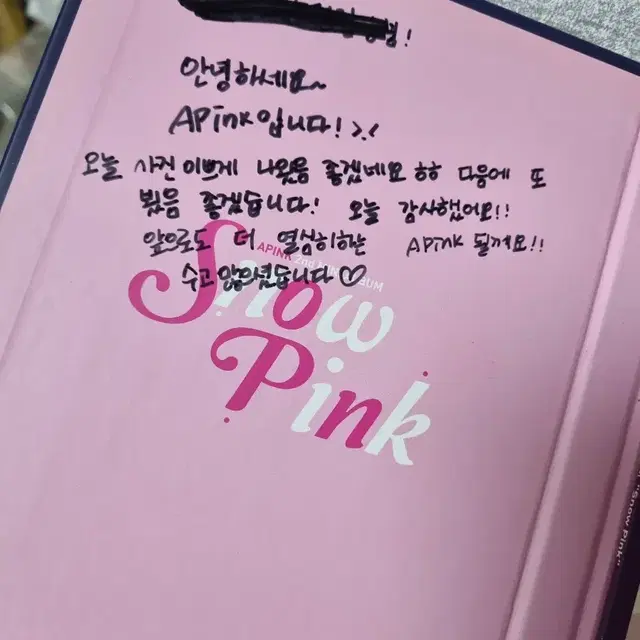 님!
안녕하세요~
APink입니다! >.<
오늘 사진 이쁘게 나왔음 좋겠네요 ㅎㅎ 다음에 또
뵜음 좋겠습니다! 오늘 감사했어요!!
앞으로도 더 열심히하는 APink 될께요!!
수고 많으셨습니다♡
APINK 2nd MINI ALBUM
Snow
Pink
"Snow Pink"